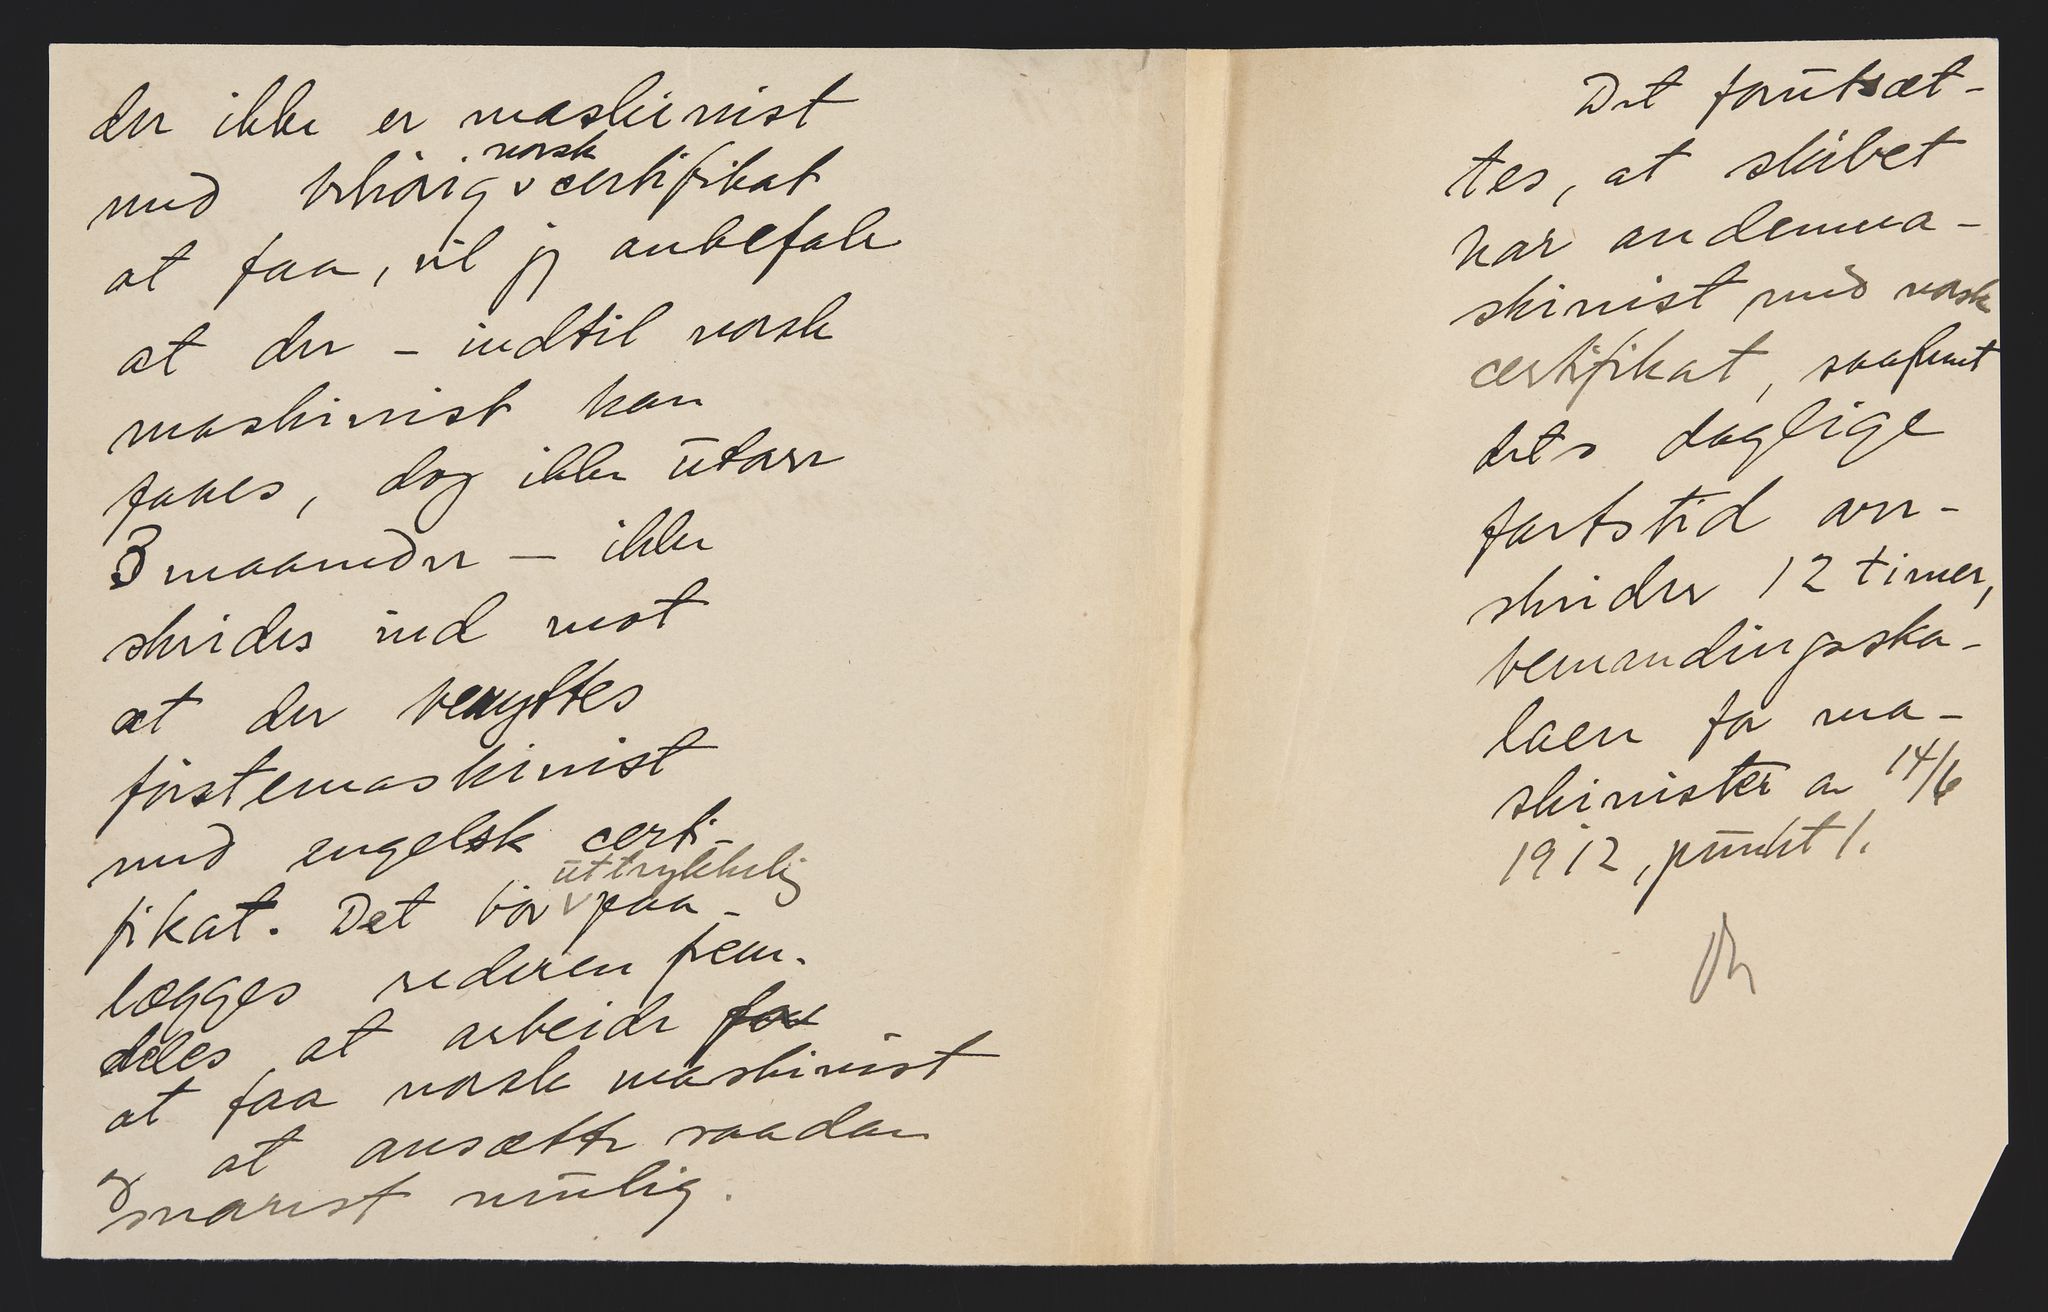 der ikke er maskinist
med behørig norsk certifikat
at faa, vil jeg anbefale
at der – indtil norsk
maskinist kan
faaes, dog ikke utover
3 maaneder – ikke
skrides ind mot
at der benyttes
førstemaskinist
med engelsk certi-
fikat. Det bør uttrykkelig paa-
lægges rederen frem-
deles at arbeide for
at faa norsk maskinist
og at ansætte saadan
snarest mulig.
Det forutsæt-
tes, at skibet
har andenma-
skinist med norsk
certifikat, saafremt
dets daglige
fartstid over-
skrider 12 timer,
bemandingsska-
laen for ma-
skinister av 14/6
1912, punkt 1.